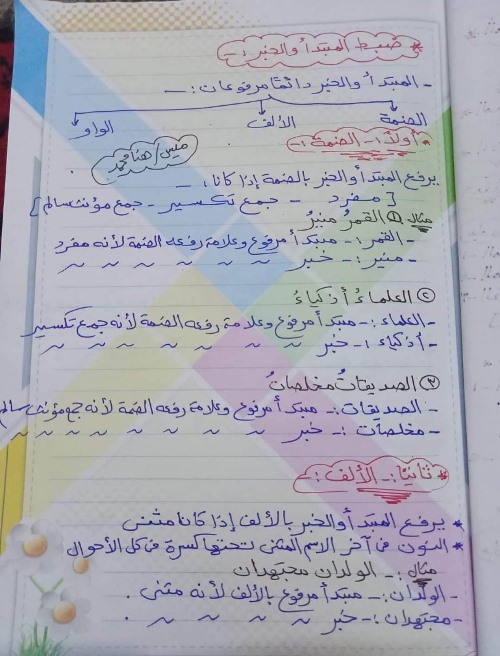 * ضبط المبتدأ والخبر :-
- المبتدأ والخبر دائمًا مرفوعات :-
الضمة الألف الواو
أولًا :- الضمة :-
ميس / هنا محمد
يرفع المبتدأ والخبر بالضمة إذا كانا :-
[ مفرد - جمع تكسير - جمع مؤنث سالم ]
مثال ① القمرُ منيرٌ
- القمر :- مبتدأ مرفوع وعلامة رفعه الضمة لأنه مفرد
- منير :- خبر ~ ~ ~ ~ ~ ~
② العلماءُ أذكياءُ
- العلماء :- مبتدأ مرفوع وعلامة رفعه الضمة لأنه جمع تكسير
- أذكياء :- خبر ~ ~ ~ ~ ~ ~ ~
③ الصديقاتُ مخلصاتٌ
- الصديقات :- مبتدأ مرفوع وعلامة رفعه الضمة لأنه جمع مؤنث سالم
- مخلصات :- خبر ~ ~ ~ ~ ~ ~ ~ ~
* ثانيًا :- الألف :-
* يرفع المبتدأ والخبر بالألف إذا كانا مثنى
* النون فى آخر الاسم المثنى تحتها كسرة فى كل الأحوال
مثال :- الولدان مجتهدان
- الولدان :- مبتدأ مرفوع بالألف لأنه مثنى .
- مجتهدان :- خبر ~ ~ ~ ~ .